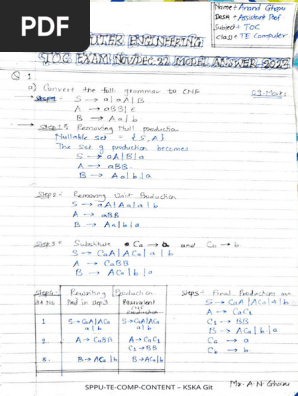 PDF
Name : Anand Gharu
Desn : Assistant Prof
Subject : TOC
Class : TE Computer
COMPUTER ENGINEERING
TOC EXAM NOV/DEC 22 MODEL ANSWER 2022
Q.1
a) Convert the foll. grammar to CNF
S → a|aA|B
A → aBB|ε
B → Aa|b
Step 1 : Removing Null production
Nullable set = {S, A}
The set of production becomes
S → aA|B|a
A → aBB
B → Aa|b|a
Step 2 : Removing Unit Production
S → aA|Aa|a|b
A → aBB
B → Aa|b|a
Step 3 : Substitute Ca → a and Cb → b
S → CaA|ACa|a|b
A → CaBB
B → ACa|b|a
Step 4 Rewriting Production
Sr No Prod in step 3 Equivalent
1 S→CaA|ACa S→CaA|ACa
a|b a|b
2 A→CaBB A→CaC1
C1→BB
3. B→ACa|b B→ACa|b
Step 5 : Final Productions are
S → CaA|ACa|a|b
A → CaC1
C1 → BB
B → ACa|b|a
Ca → a
Cb → b
Mr. A.N. Gharu
SPPU-TE-COMP-CONTENT – KSKA Git